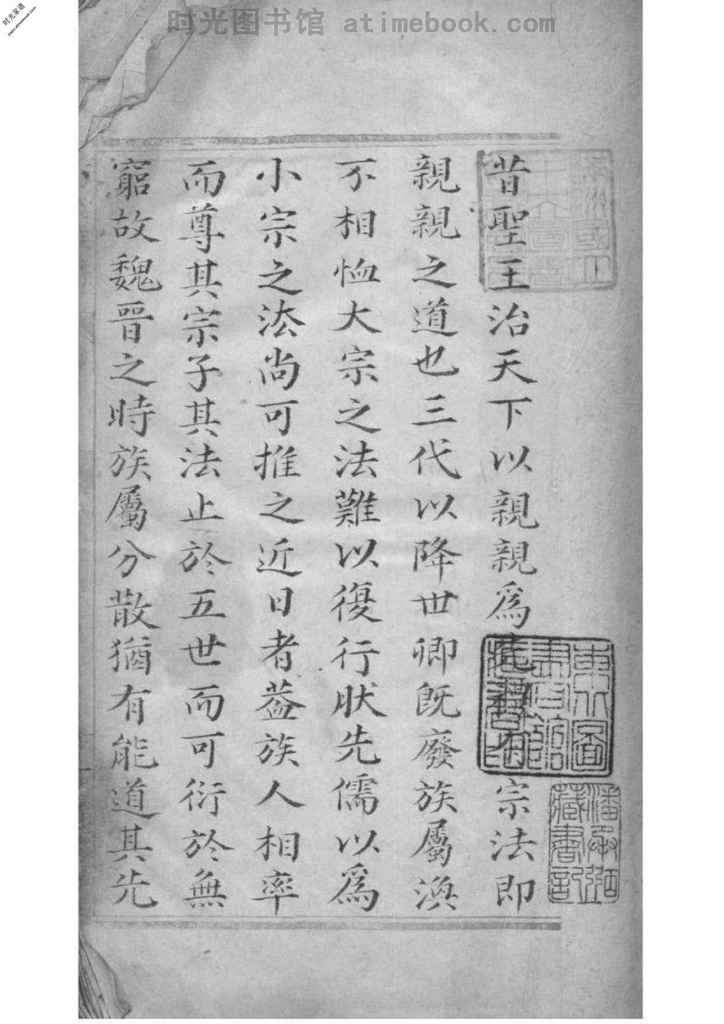 时光图书馆 atimebook.com
时光家谱
www.atimebook.com
昔聖王治天下以親親爲宗法即
親親之道也三代以降世卿既廢族屬渙
不相恤大宗之法難以復行狀先儒以爲
小宗之法尚可推之近日者葢族人相率
而尊其宗子其法止於五世而可衍於無
窮故魏晉之時族屬分散猶有能道其先